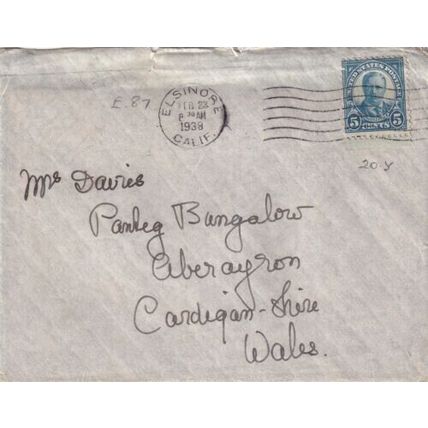 ELSINORE
FEB 23
8 30 AM
1938
CALIF.
UNITED STATES POSTAGE
5 CENTS 5
E.87
20-y
Mrs Davies
Panteg Bungalow
Aberayron
Cardigan-Shire
Wales.